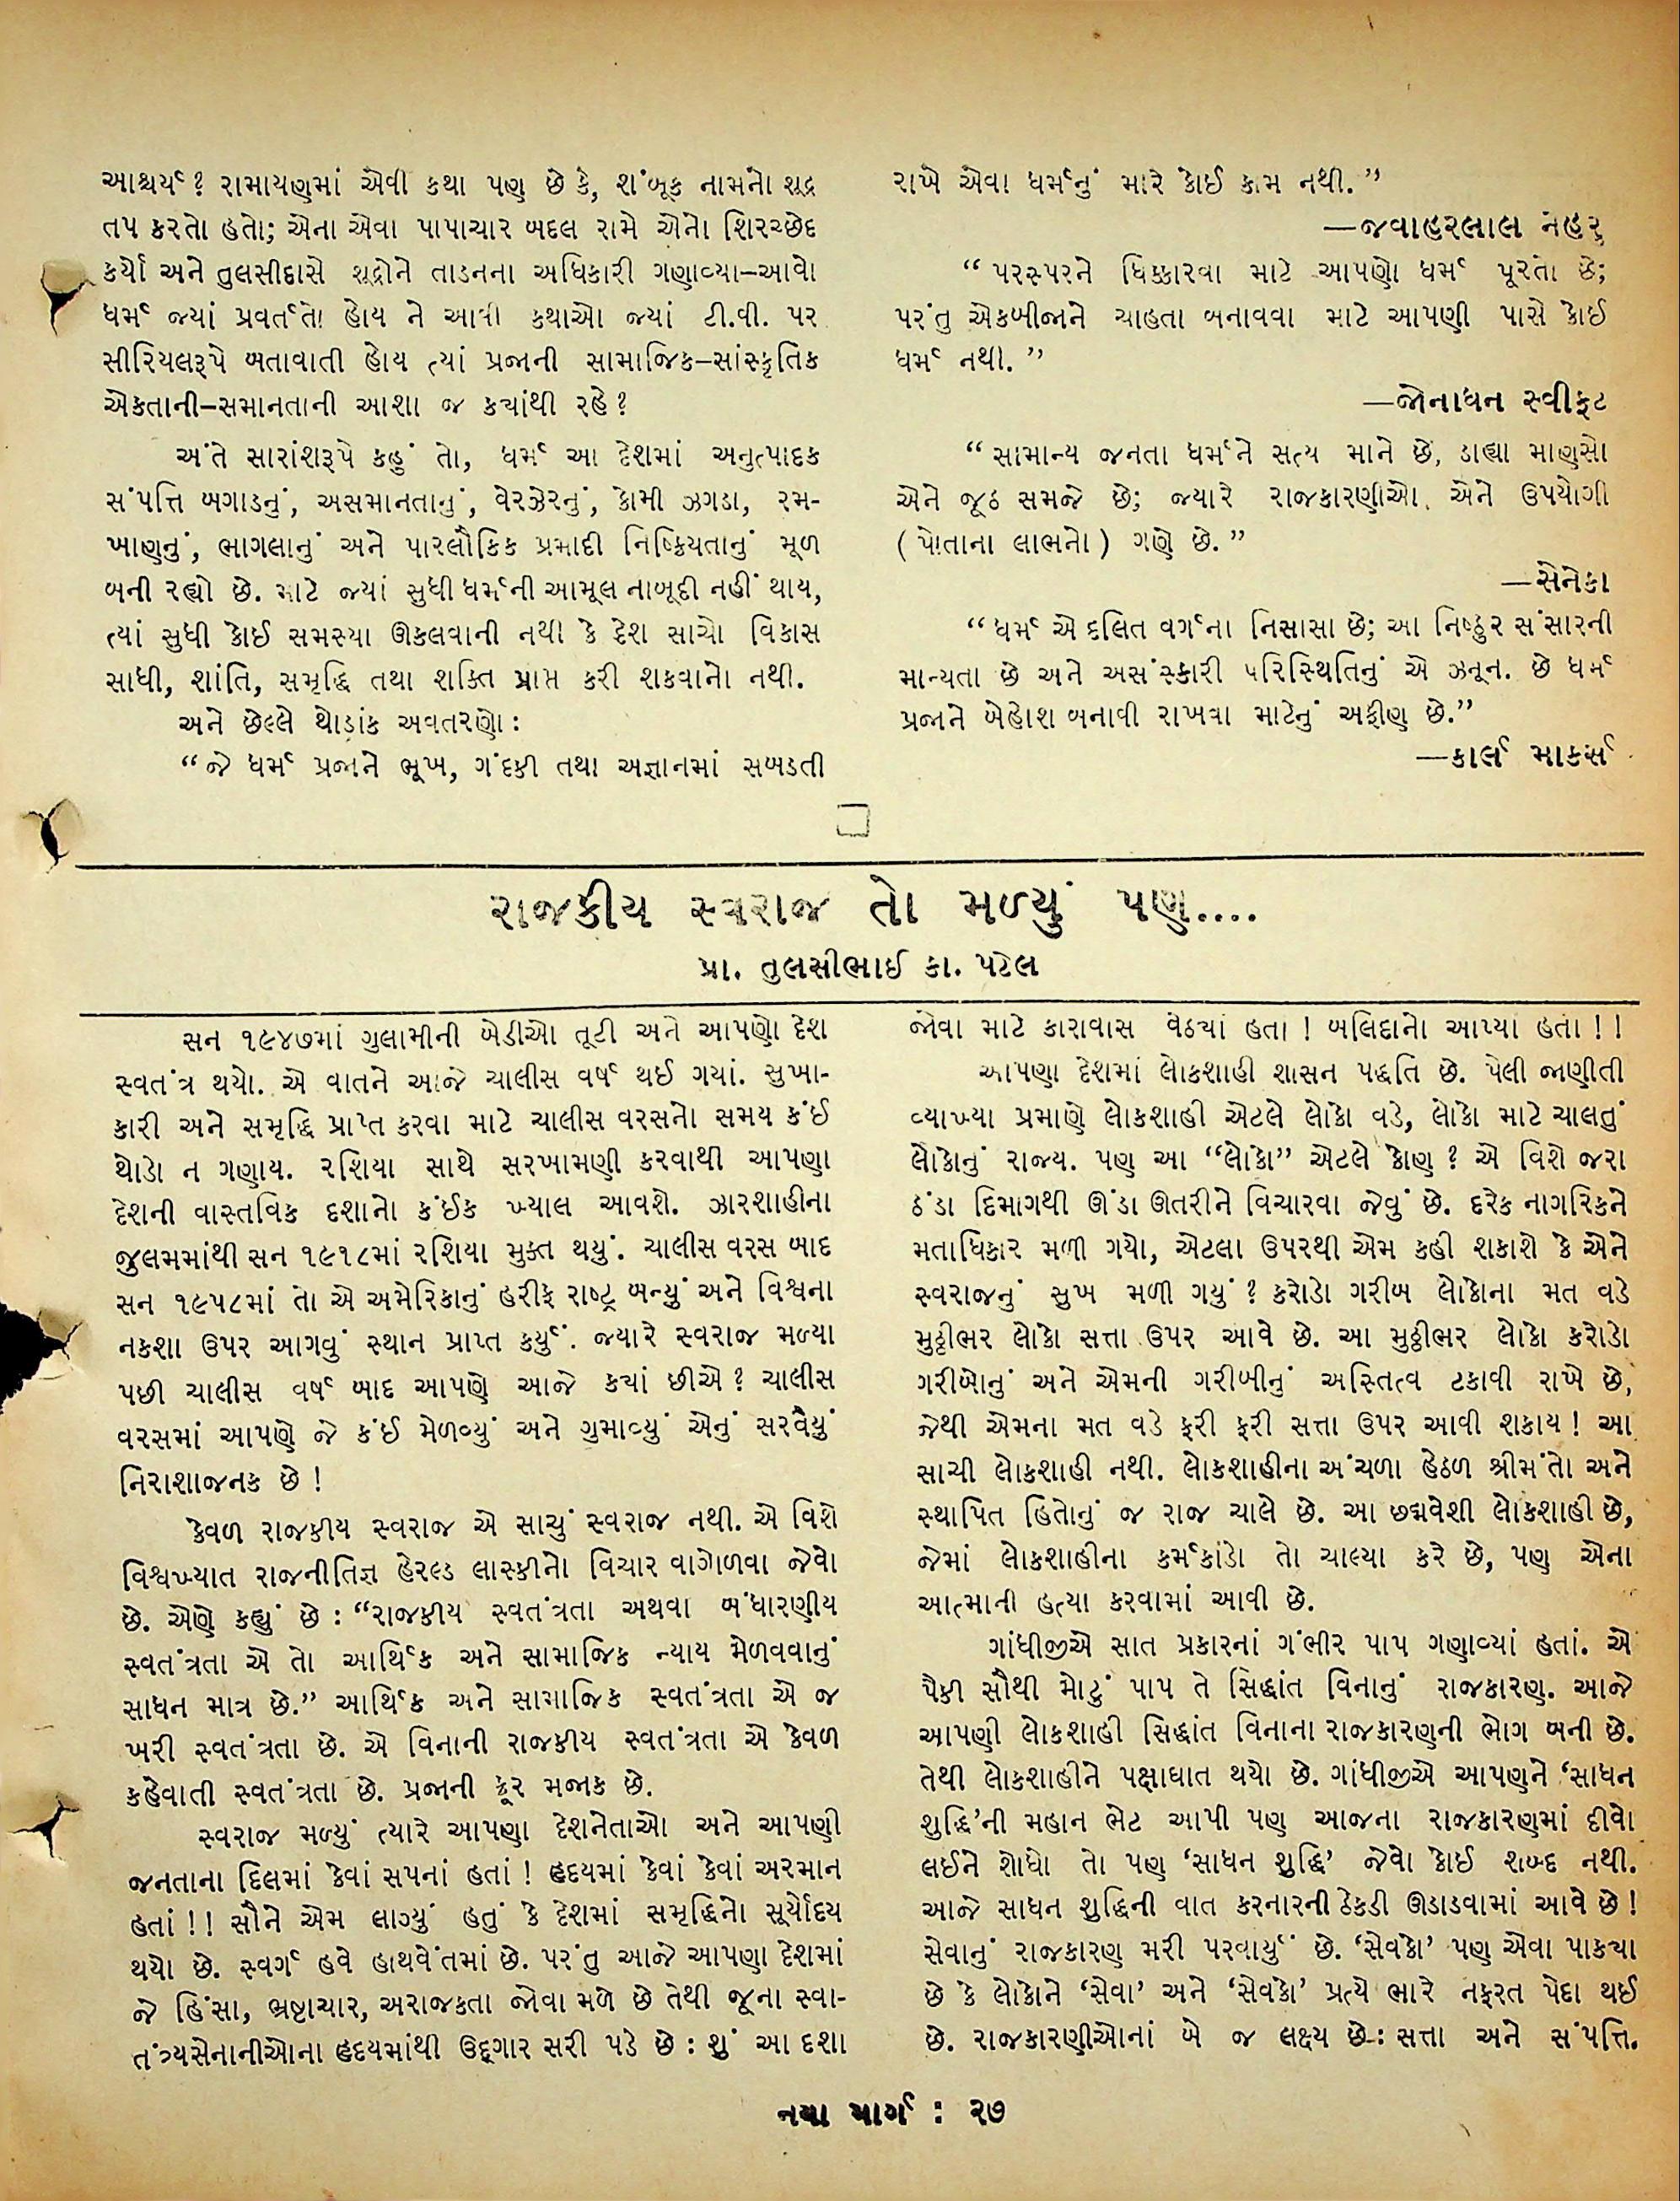 આશ્ચર્ય? રામાયણમાં એવી કથા પણ છે કે, શંબૂક નામનો શૂદ્ર
તપ કરતો હતો; એના એવા પાપાચાર બદલ રામે એનો શિરચ્છેદ
કર્યો અને તુલસીદાસે શૂદ્રોને તાડનના અધિકારી ગણાવ્યા–આવો
ધર્મ જ્યાં પ્રવર્તતો હોય ને આવી કથાઓ જ્યાં ટી.વી. પર
સીરિયલરૂપે બતાવાતી હોય ત્યાં પ્રજાની સામાજિક–સાંસ્કૃતિક
એકતાની–સમાનતાની આશા જ ક્યાંથી રહે?
અંતે સારાંશરૂપે કહું તો, ધર્મ આ દેશમાં અનુત્પાદક
સંપત્તિ બગાડનું, અસમાનતાનું, વેરઝેરનું, કોમી ઝગડા, રમ-
ખાણનું, ભાગલાનું અને પારલૌકિક પ્રમાદી નિષ્ક્રિયતાનું મૂળ
બની રહ્યો છે. માટે જ્યાં સુધી ધર્મની આમૂલ નાબૂદી નહીં થાય,
ત્યાં સુધી કોઈ સમસ્યા ઊકલવાની નથી કે દેશ સાચો વિકાસ
સાધી, શાંતિ, સમૃદ્ધિ તથા શક્તિ પ્રાપ્ત કરી શકવાનો નથી.
અને છેલ્લે થોડાંક અવતરણો :
“જે ધર્મ પ્રજાને ભૂખ, ગંદકી તથા અજ્ઞાનમાં સબડતી
રાખે એવા ધર્મનું મારે કોઈ કામ નથી.”
—જવાહરલાલ નેહરુ
“પરસ્પરને ધિક્કારવા માટે આપણો ધર્મ પૂરતો છે;
પરંતુ એકબીજાને ચાહતા બનાવવા માટે આપણી પાસે કોઈ
ધર્મ નથી.”
—જોનાધન સ્વીફટ
“સામાન્ય જનતા ધર્મને સત્ય માને છે, ડાહ્યા માણસો
એને જૂઠ સમજે છે; જ્યારે રાજકારણીઓ એને ઉપયોગી
(પોતાના લાભનો) ગણે છે.”
—સેનેકા
“ધર્મ એ દલિત વર્ગના નિસાસા છે; આ નિષ્ઠુર સંસારની
માન્યતા છે અને અસંસ્કારી પરિસ્થિતિનું એ ઝનૂન. છે ધર્મ
પ્રજાને બેહોશ બનાવી રાખવા માટેનું અફીણ છે.”
—કાર્લ માર્કસ
રાજકીય સ્વરાજ તો મળ્યું પણ....
પ્રા. તુલસીભાઈ કા. પટેલ
સન ૧૯૪૭માં ગુલામીની બેડીઓ તૂટી અને આપણો દેશ
સ્વતંત્ર થયો. એ વાતને આજે ચાલીસ વર્ષ થઈ ગયાં. સુખા-
કારી અને સમૃદ્ધિ પ્રાપ્ત કરવા માટે ચાલીસ વરસનો સમય કંઈ
થોડો ન ગણાય. રશિયા સાથે સરખામણી કરવાથી આપણા
દેશની વાસ્તવિક દશાનો કંઈક ખ્યાલ આવશે. ઝારશાહીના
જુલમમાંથી સન ૧૯૧૮માં રશિયા મુક્ત થયું. ચાલીસ વરસ બાદ
સન ૧૯૫૮માં તો એ અમેરિકાનું હરીફ રાષ્ટ્ર બન્યું અને વિશ્વના
નકશા ઉપર આગવું સ્થાન પ્રાપ્ત કર્યું. જ્યારે સ્વરાજ મળ્યા
પછી ચાલીસ વર્ષ બાદ આપણે આજે ક્યાં છીએ? ચાલીસ
વરસમાં આપણે જે કંઈ મેળવ્યું અને ગુમાવ્યું એનું સરવૈયું
નિરાશાજનક છે!
કેવળ રાજકીય સ્વરાજ એ સાચું સ્વરાજ નથી. એ વિશે
વિશ્વખ્યાત રાજનીતિજ્ઞ હેરલ્ડ લાસ્કીનો વિચાર વાગોળવા જેવો
છે. એણે કહ્યું છે : “રાજકીય સ્વતંત્રતા અથવા બંધારણીય
સ્વતંત્રતા એ તો આર્થિક અને સામાજિક ન્યાય મેળવવાનું
સાધન માત્ર છે.” આર્થિક અને સામાજિક સ્વતંત્રતા એ જ
ખરી સ્વતંત્રતા છે. એ વિનાની રાજકીય સ્વતંત્રતા એ કેવળ
કહેવાતી સ્વતંત્રતા છે. પ્રજાની ક્રૂર મજાક છે.
સ્વરાજ મળ્યું ત્યારે આપણા દેશનેતાઓ અને આપણી
જનતાના દિલમાં કેવાં સપનાં હતાં! હૃદયમાં કેવાં કેવાં અરમાન
હતાં!! સૌને એમ લાગ્યું હતું કે દેશમાં સમૃદ્ધિનો સૂર્યોદય
થયો છે. સ્વર્ગ હવે હાથવેંતમાં છે. પરંતુ આજે આપણા દેશમાં
જે હિંસા, ભ્રષ્ટાચાર, અરાજકતા જોવા મળે છે તેથી જૂના સ્વા-
તંત્ર્યસેનાનીઓના હૃદયમાંથી ઉદ્ગાર સરી પડે છે : શું આ દશા
જોવા માટે કારાવાસ વેઠ્યાં હતા! બલિદાનો આપ્યા હતા!!
આપણા દેશમાં લોકશાહી શાસન પદ્ધતિ છે. પેલી જાણીતી
વ્યાખ્યા પ્રમાણે લોકશાહી એટલે લોકો વડે, લોકો માટે ચાલતું
લોકોનું રાજ્ય. પણ આ “લોકો” એટલે કોણ? એ વિશે જરા
ઠંડા દિમાગથી ઊંડા ઊતરીને વિચારવા જેવું છે. દરેક નાગરિકને
મતાધિકાર મળી ગયો, એટલા ઉપરથી એમ કહી શકાશે કે એને
સ્વરાજનું સુખ મળી ગયું? કરોડો ગરીબ લોકોના મત વડે
મુઠ્ઠીભર લોકો સત્તા ઉપર આવે છે. આ મુઠ્ઠીભર લોકો કરોડો
ગરીબોનું અને એમની ગરીબીનું અસ્તિત્વ ટકાવી રાખે છે,
જેથી એમના મત વડે ફરી ફરી સત્તા ઉપર આવી શકાય! આ
સાચી લોકશાહી નથી. લોકશાહીના અંચળા હેઠળ શ્રીમંતો અને
સ્થાપિત હિતોનું જ રાજ ચાલે છે. આ છદ્મવેશી લોકશાહી છે,
જેમાં લોકશાહીના કર્મકાંડો તો ચાલ્યા કરે છે, પણ એના
આત્માની હત્યા કરવામાં આવી છે.
ગાંધીજીએ સાત પ્રકારનાં ગંભીર પાપ ગણાવ્યાં હતાં. એ
પૈકી સૌથી મોટું પાપ તે સિદ્ધાંત વિનાનું રાજકારણ. આજે
આપણી લોકશાહી સિદ્ધાંત વિનાના રાજકારણની ભોગ બની છે.
તેથી લોકશાહીને પક્ષાઘાત થયો છે. ગાંધીજીએ આપણને ‘સાધન
શુદ્ધિ’ની મહાન ભેટ આપી પણ આજના રાજકારણમાં દીવો
લઈને શોધો તો પણ ‘સાધન શુદ્ધિ’ જેવો કોઈ શબ્દ નથી.
આજે સાધન શુદ્ધિની વાત કરનારની ઠેકડી ઊડાડવામાં આવે છે!
સેવાનું રાજકારણ મરી પરવાર્યું છે. ‘સેવકો’ પણ એવા પાક્યા
છે કે લોકોને ‘સેવા’ અને ‘સેવકો’ પ્રત્યે ભારે નફરત પેદા થઈ
છે. રાજકારણીઓનાં બે જ લક્ષ્ય છે : સત્તા અને સંપત્તિ.
નયા માર્ગ : ૨૭